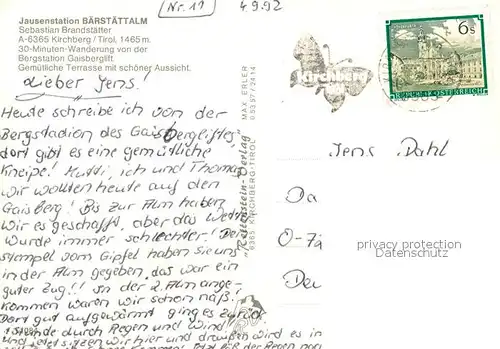 Jausenstation BÄRSTÄTTALM
Sebastian Brandstätter
A-6365 Kirchberg / Tirol, 1465 m.
30-Minuten-Wanderung von der
Bergstation Gaisberglift.
Gemütliche Terrasse mit schöner Aussicht.
Nr. 11
4.9.92
Lieber Jens!
Heute schreibe ich von der
Bergstadion des Gaisbergliftes,
dort gibt es eine gemütliche
Kneipe! Mutti, ich und Thomas
wir wollten heute auf den
Gaisberg! Bis zur Alm haben
wir es geschafft, aber das Wetter
wurde immer schlechter! Den
Stempel vom Gipfel haben sie uns
in der Alm gegeben, das war ein
guter Zug!! In der 2. Alm ange-
kommen waren wir schon naß!
Dort gut aufgewärmt ging es zurück
1 Stunde durch Regen und Wind
und jetzt sitzen wir hier und draußen wird es
der Regen
MAX ERLER
"Rettenstein-Verlag"
6365 KIRCHBERG-TIROL
6s
REPUBLIK ÖSTERREICH
Jens Dahl
Da
O-
De
privacy protection
Datenschutz